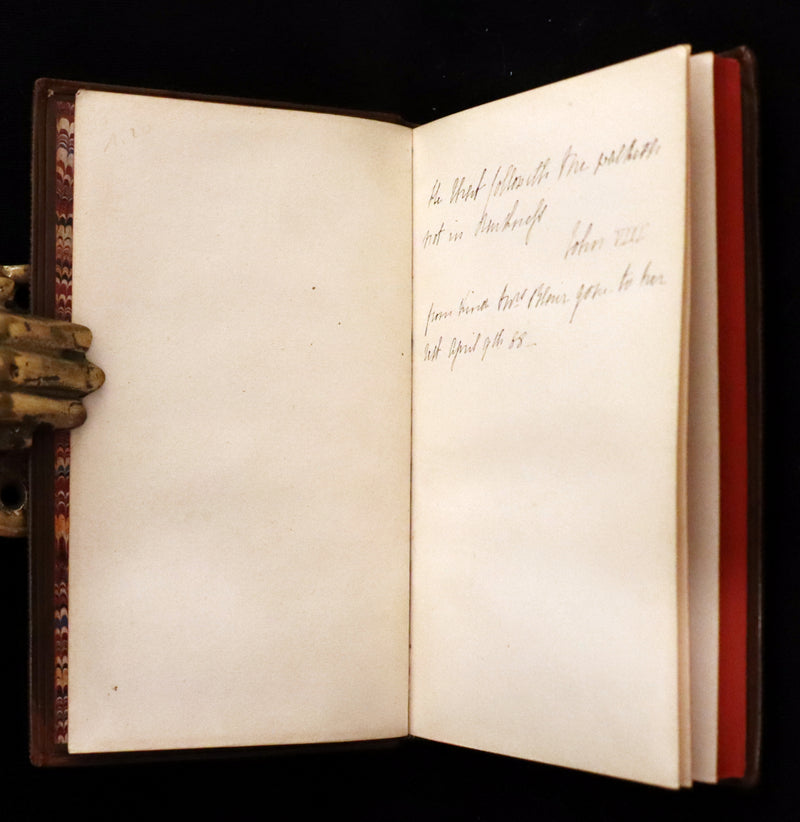 1.20
He that followeth me walketh
not in darkness
John VIII
from kind Mrs Blair gone to her
rest April 9th 68 –